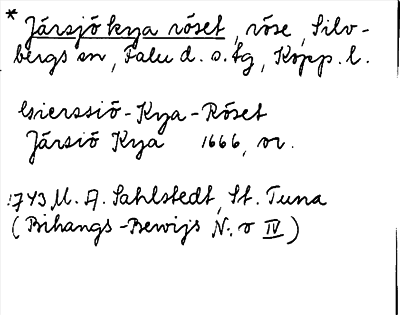 * Järsjö kya röset, röse, Silv-
bergs sn, Falu d. o. tg, Kopp. l.
Gierssiö-Kya-Röset
Järsiö Kya 1666, or.
1743 M. A. Sahlstedt, St. Tuna
(Bihangs-Bewijs N:o IV)